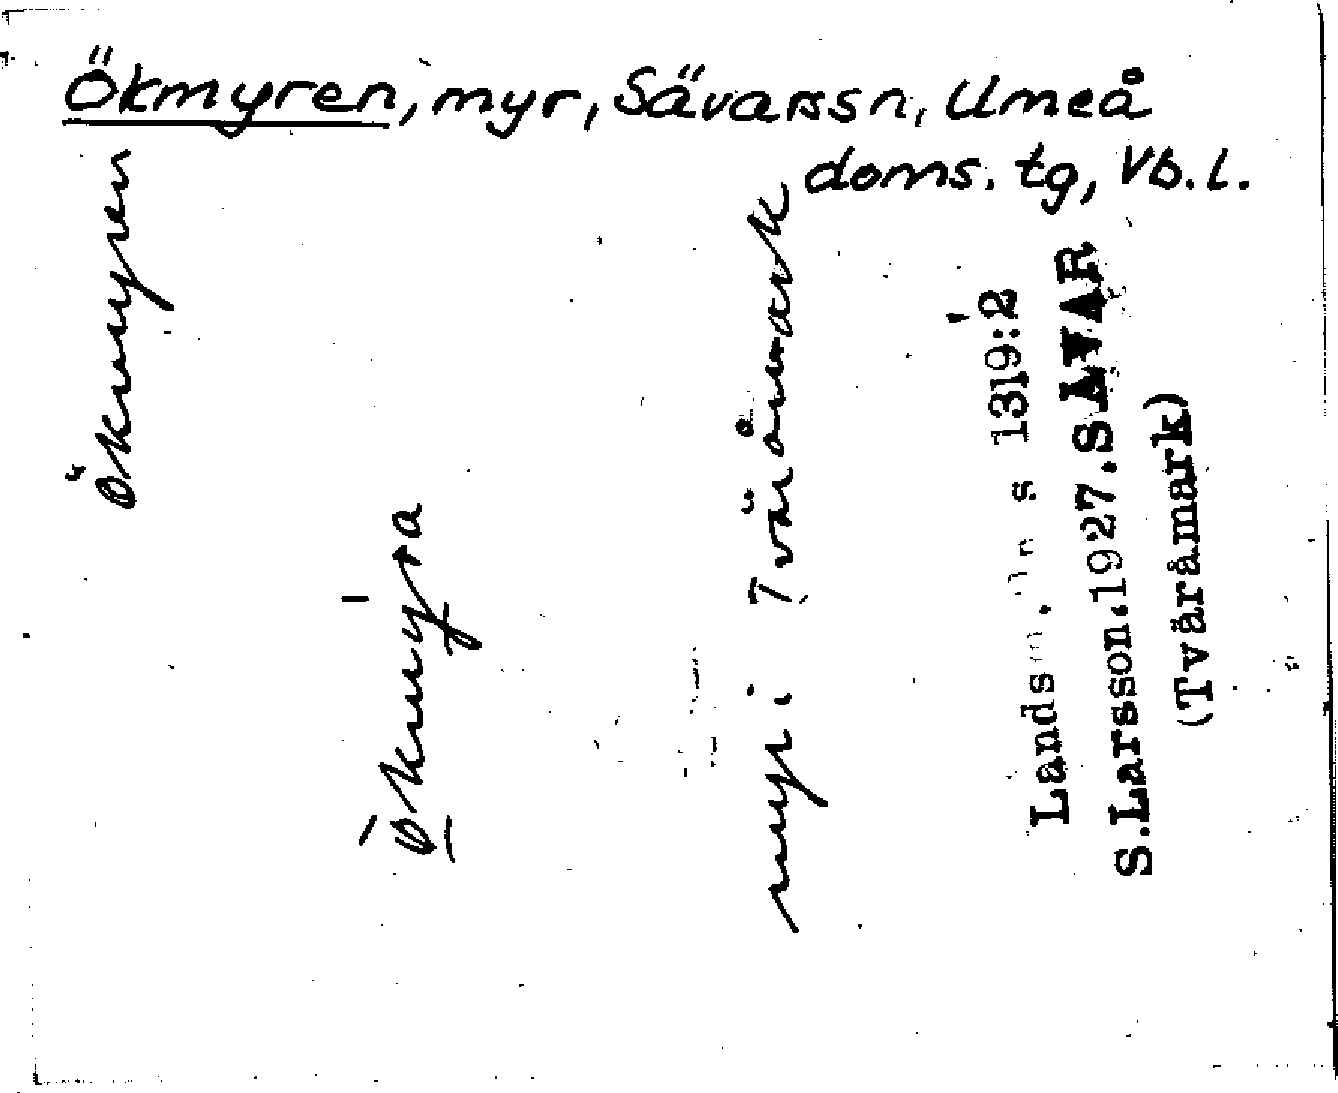 Ökmyren, myr, Sävars sn, Umeå
doms. tg, Vb. l.
Ökmyren
Ökmyra
myr i Tväråmark
Landsm. s 1319:2
S.Larsson.1927.SÄVAR
(Tväråmark)